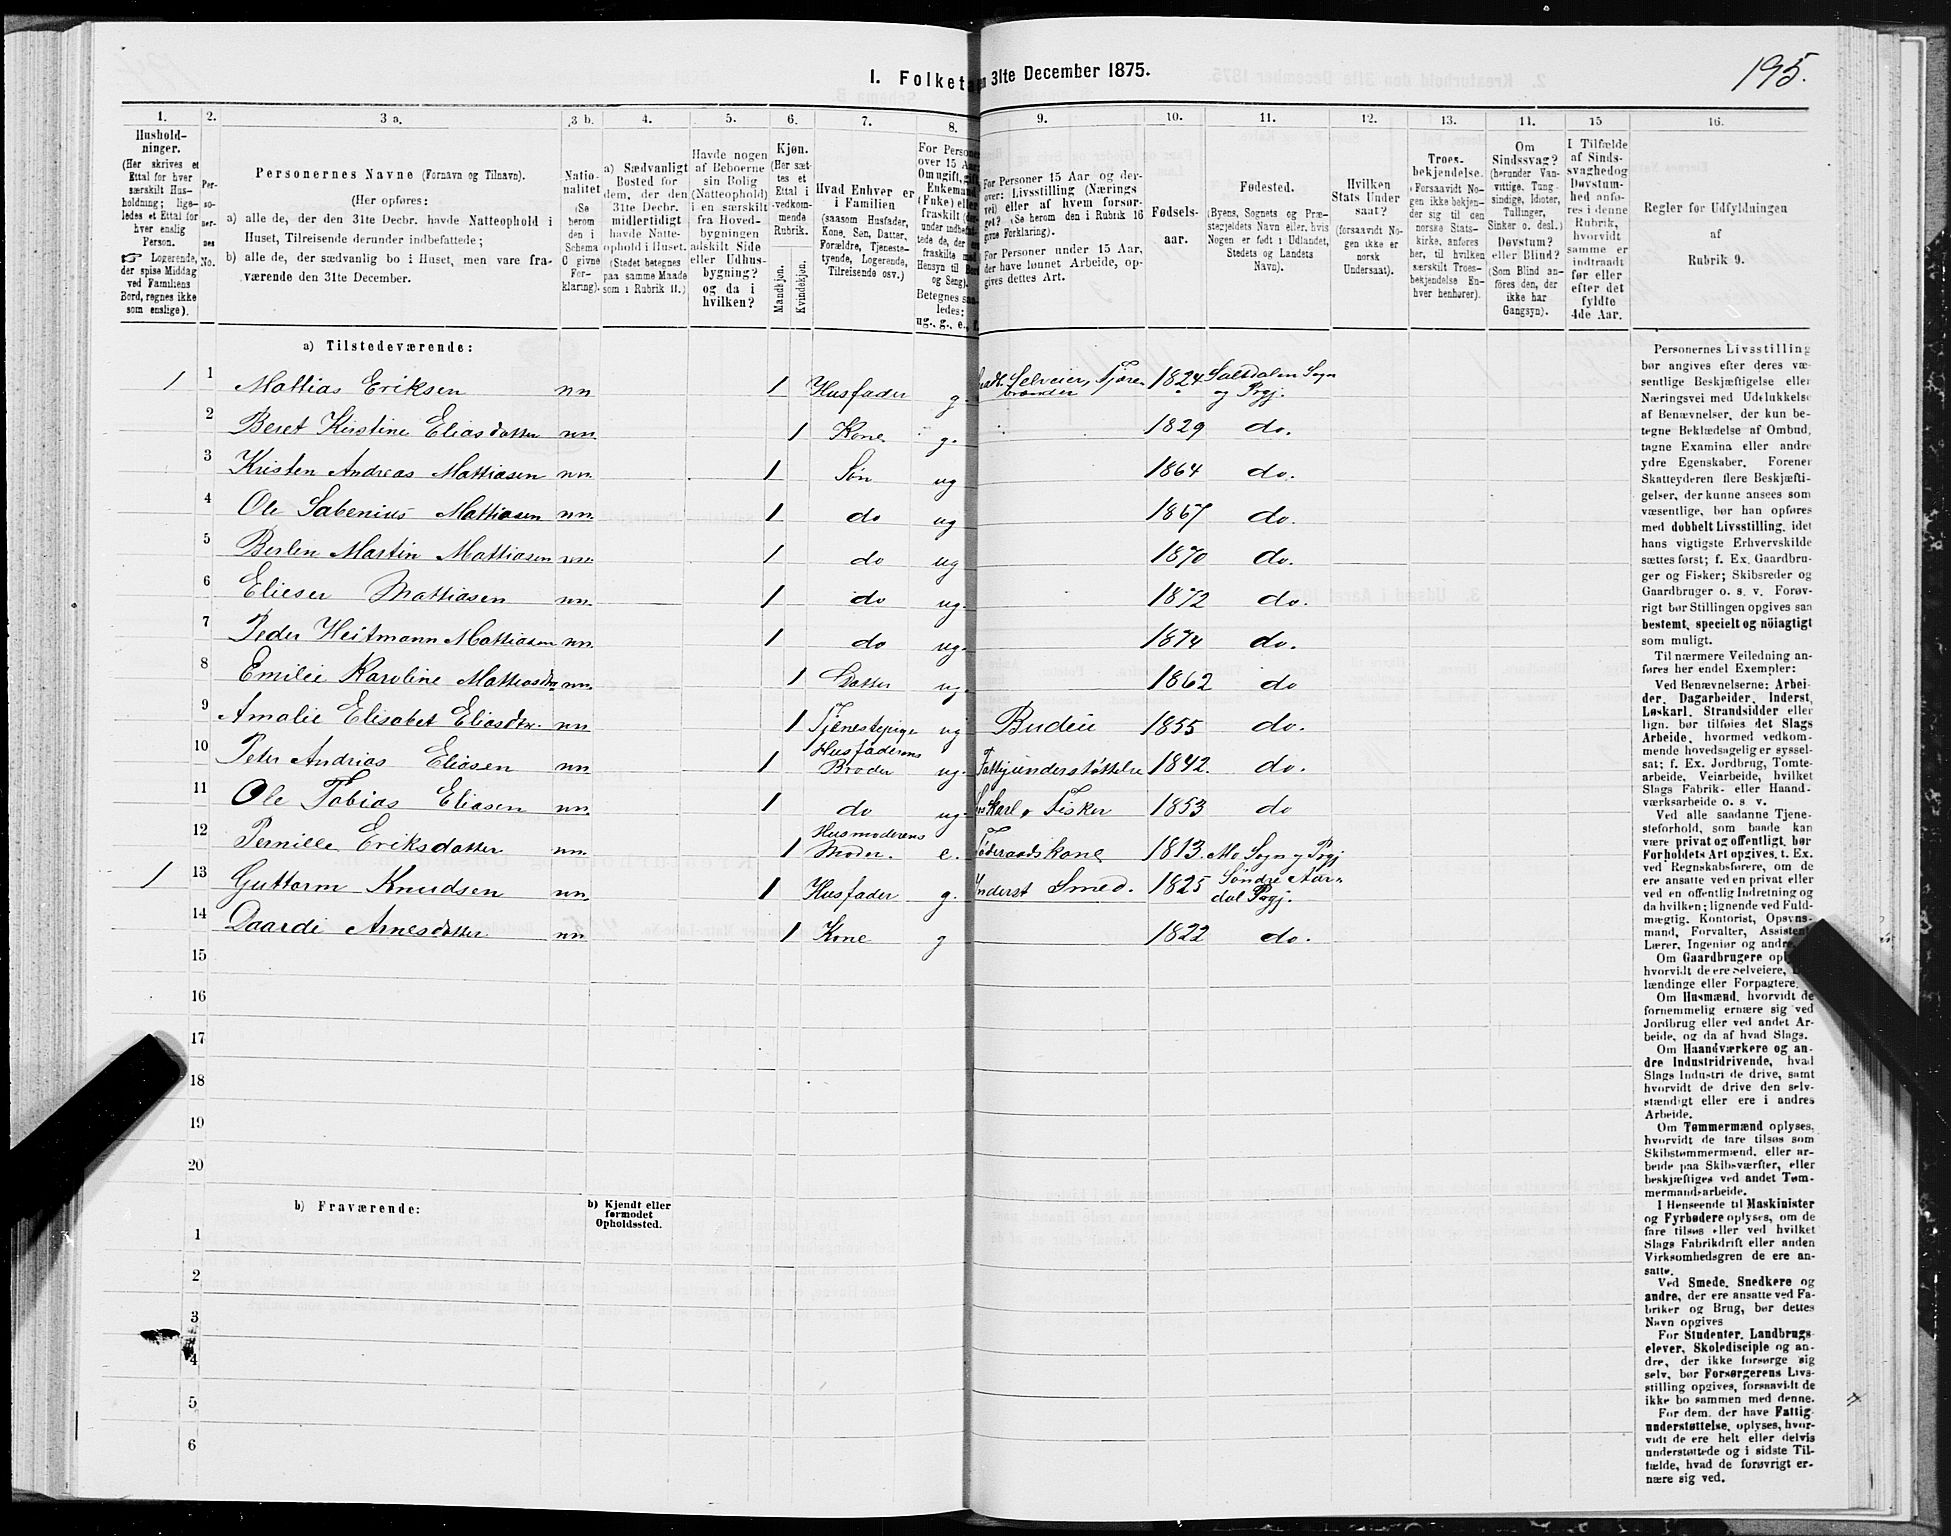 195.
1. Folketa
n 31te December 1875.
1.
Hushold-
ninger.
(Her skrives et
Ettal for hver
særskilt Hus-
holdning; lige-
ledes et Ettal for
hver enslig
Person.
☞ Logerende,
der spise Middag
ved Familiens
Bord, regnes ikke
som enslige).
2.
Per-
so-
ner-
nes
No.
3 a.
Personernes Navne (Fornavn og Tilnavn).
(Her opføres:
a) alle de, der den 31te Decbr. havde Natteophold i
Huset, Tilreisende derunder indbefattede;
b) alle de, der sædvanlig bo i Huset, men vare fra-
værende den 31te December.
3 b.
Natio-
nalitet
(Se
herom
den i
Schema
C givne
For-
klaring).
4.
a) Sædvanligt
Bosted for
dem, der den
31te Decbr.
midlertidigt
havde Natte-
ophold i Huset.
(Stedet betegnes
paa samme Maade
som i Rubrik 11.)
5.
Havde nogen
af Beboerne
sin Bolig
(Natteophold)
i en særskilt
fra Hoved-
bygningen
adskilt Side
eller Udhus-
bygning?
og da i
hvilken?
6.
Kjøn.
(Her sæt-
tes et
Ettal i
vedkom-
mende
Rubrik.
Mandkjøn.
Kvindekjøn.
7.
Hvad Enhver er
i Familien
(saasom Husfader,
Kone, Søn, Datter,
Forældre, Tjeneste-
tyende, Logerende,
Tilreisende osv.)
8.
For Personer
over 15 Aar
Om ugift, gift,
Enkemand
(Enke) eller
fraskilt (der-
under indbefat-
tede de, der ere
fraskilte med
Hensyn til Bord
og Seng).
Betegnes saa-
ledes:
ug., g., e., f.
9.
For Personer 15 Aar og der-
over: Livsstilling (Nærings
vei) eller af hvem forsør-
get? (Se herom den i Rubrik 16
givne Forklaring).
For Personer under 15 Aar,
der have lønnet Arbeide, op-
gives dettes Art.
10.
Fødsels-
aar.
11.
Fødested.
(Byens, Sognets og Præ-
stegjeldets Navn eller, hvis
Nogen er født i Udlandet,
Stedets og Landets
Navn).
12.
Hvilken
Stats Under
saat?
(forsaavidt No-
gen ikke er
norsk
Undersaat).
13.
Troes-
bekjendelse.
(Forsaavidt No-
gen ikke bekjen-
der sig til den
norske Stats-
kirke, anføres
her, til hvilken
særskilt Troes-
bekjendelse En-
hver henhører).
14.
Om
Sindssvag?
(herunder Van-
vittige, Tung-
sindige, Idioter,
Tullinger,
Sinker o. desl.)
Døvstum?
eller Blind?
(Som Blind an-
føres den, der
ikke har
Gangsyn).
15
I Tilfælde
af Sinds-
svaghed og
Døvstum-
hed anfø-
res i denne
Rubrik,
hvorvidt
samme er
indtraadt
før eller
efter det
fyldte
4de Aar.
16.
Regler for Udfyldningen
af
Rubrik 9.
a) Tilstedeværende:
1 1 Mattias Eriksen nn 1 Husfader g. Selveier, Tjære- 1824 Saltdalen Sogn
brænder og Prgj.
2 Beret Kirstine Eliasdatter nn. 1 Kone g. 1829 do.
3 Kristen Andreas Mattiasen nn. 1 Søn ug 1864 do.
4 Ole Sabenius Mattiasen nn. 1 do ug 1867 do.
5 Berlin Martin Mattiasen nn. 1 do ug 1870 do.
6 Elieser Mattiasen nn. 1 do ug. 1872 do.
7 Peder Heitmann Mattiasen nn. 1 do ug. 1874 do.
8 Emilie Karoline Mattiasdtr nn. 1 Datter ug. 1862 do
9 Amalie Elisabet Eliasdtr. nn. 1 Tjenestepige ug Budeie 1855 do.
10 Peter Andrias Eliasen nn 1 Husfaderens Broder ug. Fattigunderstøttelse 1842. do.
11 Ole Tobias Eliasen nn. 1 do ug. Løskarl, Fisker 1853 do
12 Pernille Eriksdatter nn. 1 Husmoderens Moder. e. Føderaadskone 1813. Mo Sogn og Prgj
1 13 Guttorm Knudsen nn. 1 Husfader g. Inderst Smed. 1825 Søndre Aur-
dal Prgj.
14 Daardi Arnesdatter nn 1 Kone g 1822 do.
15
16
17
18
19
20
b) Fraværende:
b) Kjendt eller
formodet
Opholdssted.
1
2
3
4
5
6
Personernes Livsstilling
bør angives efter deres væ-
sentlige Beskjæftigelse eller
Næringsvei med Udelukkelse
af Benævnelser, der kun be-
tegne Beklædelse af Ombud,
tagne Examina eller andre
ydre Egenskaber. Forener
Skatteyderen flere Beskjæfti-
gelser, der kunne ansees som
væsentlige, bør han opføres
med dobbelt Livsstilling, idet
hans vigtigste Erhvervskilde
sættes først; f. Ex. Gaardbru-
ger og Fisker; Skibsreder og
Gaardbruger o. s. v. Forøv-
rigt bør Stillingen opgives saa
bestemt, specielt og nöiagtigt
som muligt.
Til nærmere Veiledning an-
føres her endel Exempler:
Ved Benævnelserne: Arbei-
der, Dagarbeider, Inderst,
Løskarl, Strandsidder eller
lign. bør tilføies det Slags
Arbeide, hvormed vedkom-
mende hovedsagelig er syssel-
sat; f. Ex. Jordbrug, Tomte-
arbeide, Veiarbeide, hvilket
Slags Fabrik- eller Haand-
værksarbeide o. s. v.
Ved alle saadanne Tjene-
steforhold, som baade kan
være privat og offentligt, bør
Forholdets Art opgives, t. Ex.
ved Regnskabsførere, om de
ere ansatte ved en privat eller
ved en offentlig Indretning og
da hvilken; lignende ved Fuld-
mægtig, Kontorist, Opsyns-
mand, Forvalter, Assistent,
Lærer, Ingeniør og andre.
Om Gaardbrugere
hvorvidt de ere Selveiere,
lændinge eller Forpagtere.
Om Husmænd, hvorvidt de
fornemmelig ernære sig ved
Jordbrug eller ved andet Ar-
beide, og da af hvad Slags.
Om Haandværkere og an-
dre Industridrivende, hvad
Slags Industri de drive, samt
hvorvidt de drive den selv-
stændigt eller ere i andres
Arbeide.
Om Tømmermænd oplyses,
hvorvidt de fare tilsøs som
Skibstømmermænd, eller ar-
beide paa Skibsværfter, eller
beskjæftiges ved andet Tøm-
mermandsarbeide.
I Henseende til Maskinister
og Fyrbødere oplyses, om de
fare tilsøs eller ved hvilket
Slags Fabrikdrift eller anden
Virksomhedsgren de ere an-
satte.
Ved Smede, Snedkere og
andre, der ere ansatte ved Fa-
briker og Brug, bør dettes
Navn opgives
For Studenter, Landbrugs-
elever, Skoledisciple og an-
dre, der ikke forsørge sig
selv, bør Forsørgerens Livs-
stilling opgives, forsaavidt de
ikke bo sammen med denne.
For dem, der have Fattig-
understøttelse, oplyses, hvor-
vidt de ere helt eller delvis
understøttede og i sidste Til-
fælde, hvad de forøvrigt er-
nære sig ved.